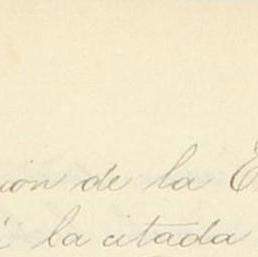 ión de la E
la citada